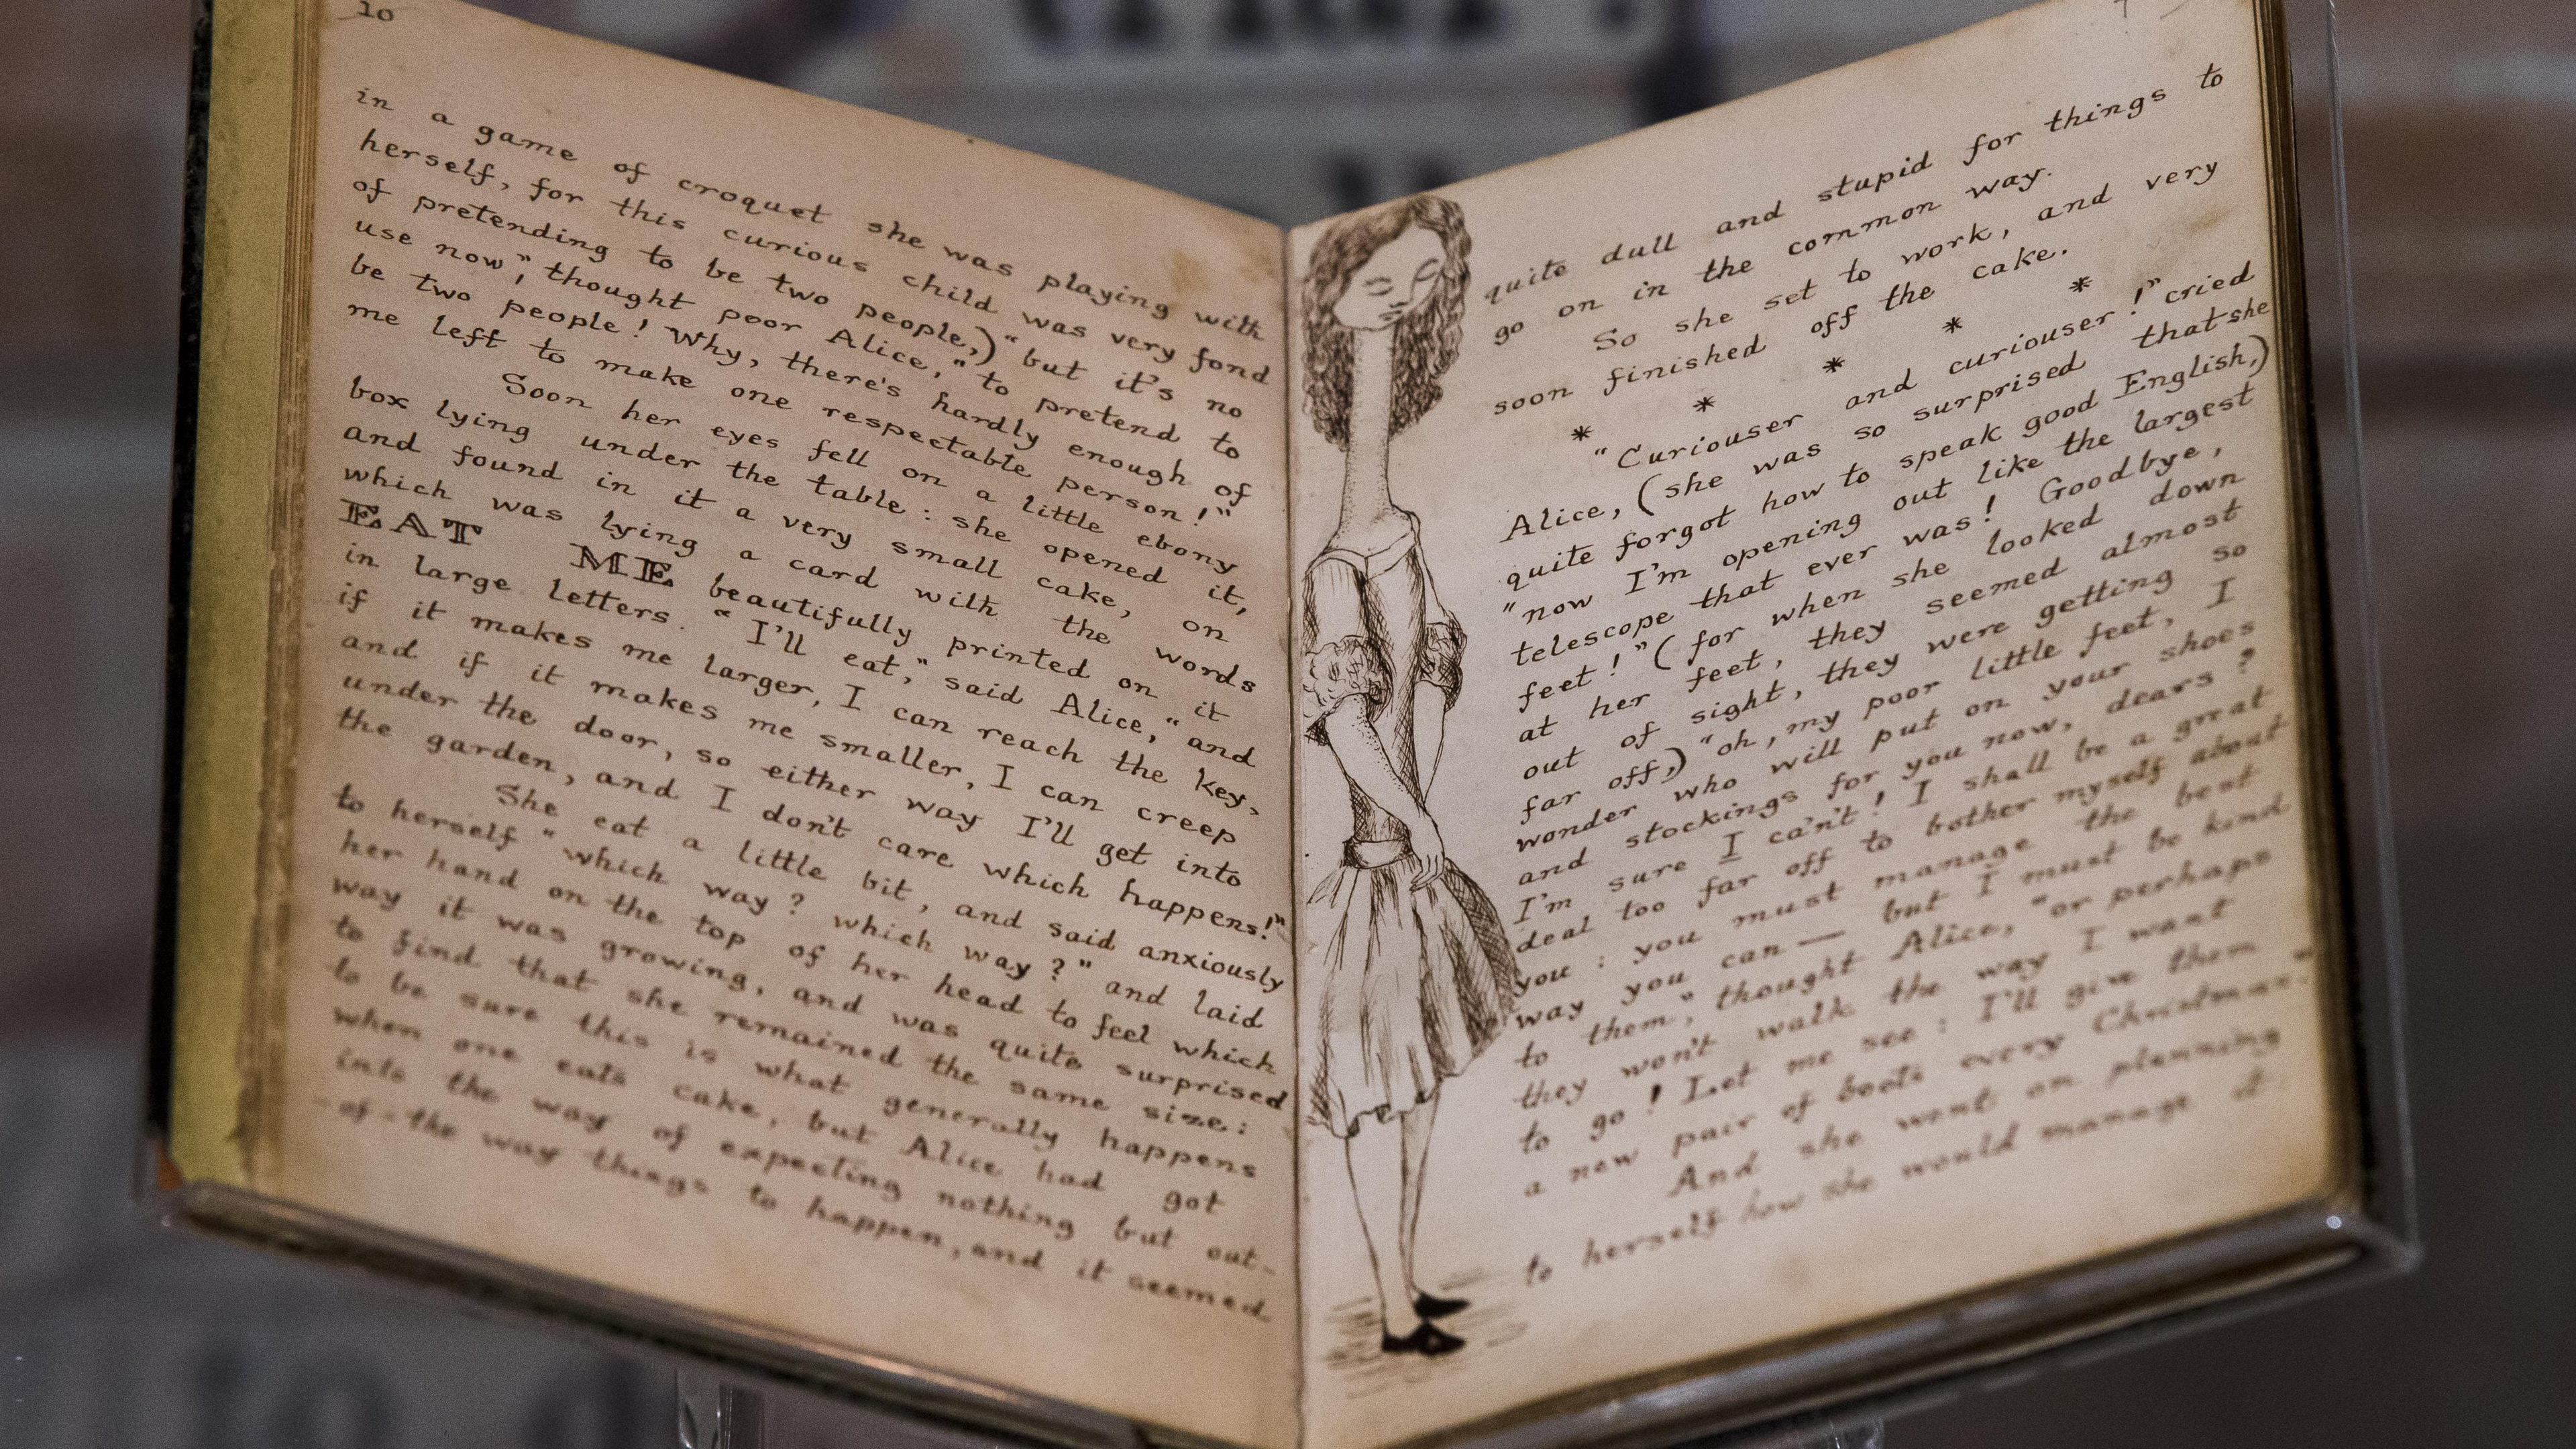 10
in a game of croquet she was playing with
herself, for this curious child was very fond
of pretending to be two people,) "but it's no
use now", thought poor Alice, "to pretend to
be two people! Why, there's hardly enough of
me left to make one respectable person!"
Soon her eyes fell on a little ebony
box lying under the table: she opened it,
and found in it a very small cake, on
which was lying a card with the words
EAT ME beautifully printed on it
in large letters. "I'll eat," said Alice, "and
if it makes me larger, I can reach the key,
and if it makes me smaller, I can creep
under the door, so either way I'll get into
the garden, and I don't care which happens!"
She eat a little bit, and said anxiously
to herself "which way? which way?" and laid
her hand on the top of her head to feel which
way it was growing, and was quite surprised
to find that she remained the same size:
to be sure this is what generally happens
when one eats cake, but Alice had got
into the way of expecting nothing but out-
-of-the way things to happen, and it seemed
quite dull and stupid for things to
go on in the common way.
So she set to work, and very
soon finished off the cake.
* * * * *
"Curiouser and curiouser!" cried
Alice, (she was so surprised that she
quite forgot how to speak good English,)
"now I'm opening out like the largest
telescope that ever was! Goodbye,
feet!" (for when she looked down
at her feet, they seemed almost
out of sight, they were getting so
far off,) "oh, my poor little feet, I
wonder who will put on your shoes
and stockings for you now, dears?
I'm sure I can't! I shall be a great
deal too far off to bother myself about
you: you must manage the best
way you can — but I must be kind
to them", thought Alice, "or perhaps
they won't walk the way I want
to go! Let me see: I'll give them
a new pair of boots every Christmas."
And she went on planning
to herself how she would manage it